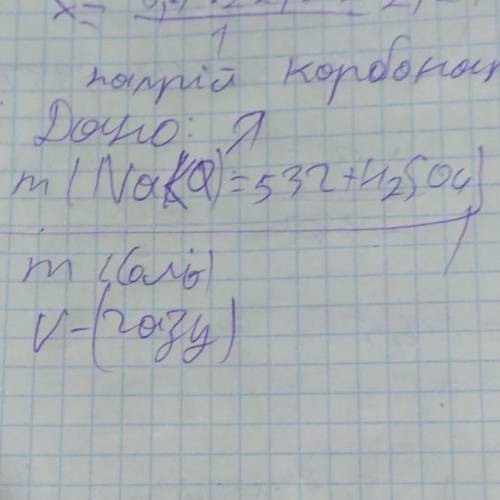 x=
1
натрій корбонат
Дано:
m (Na =53г+H2SO4)
m (солі)
V-(газу)